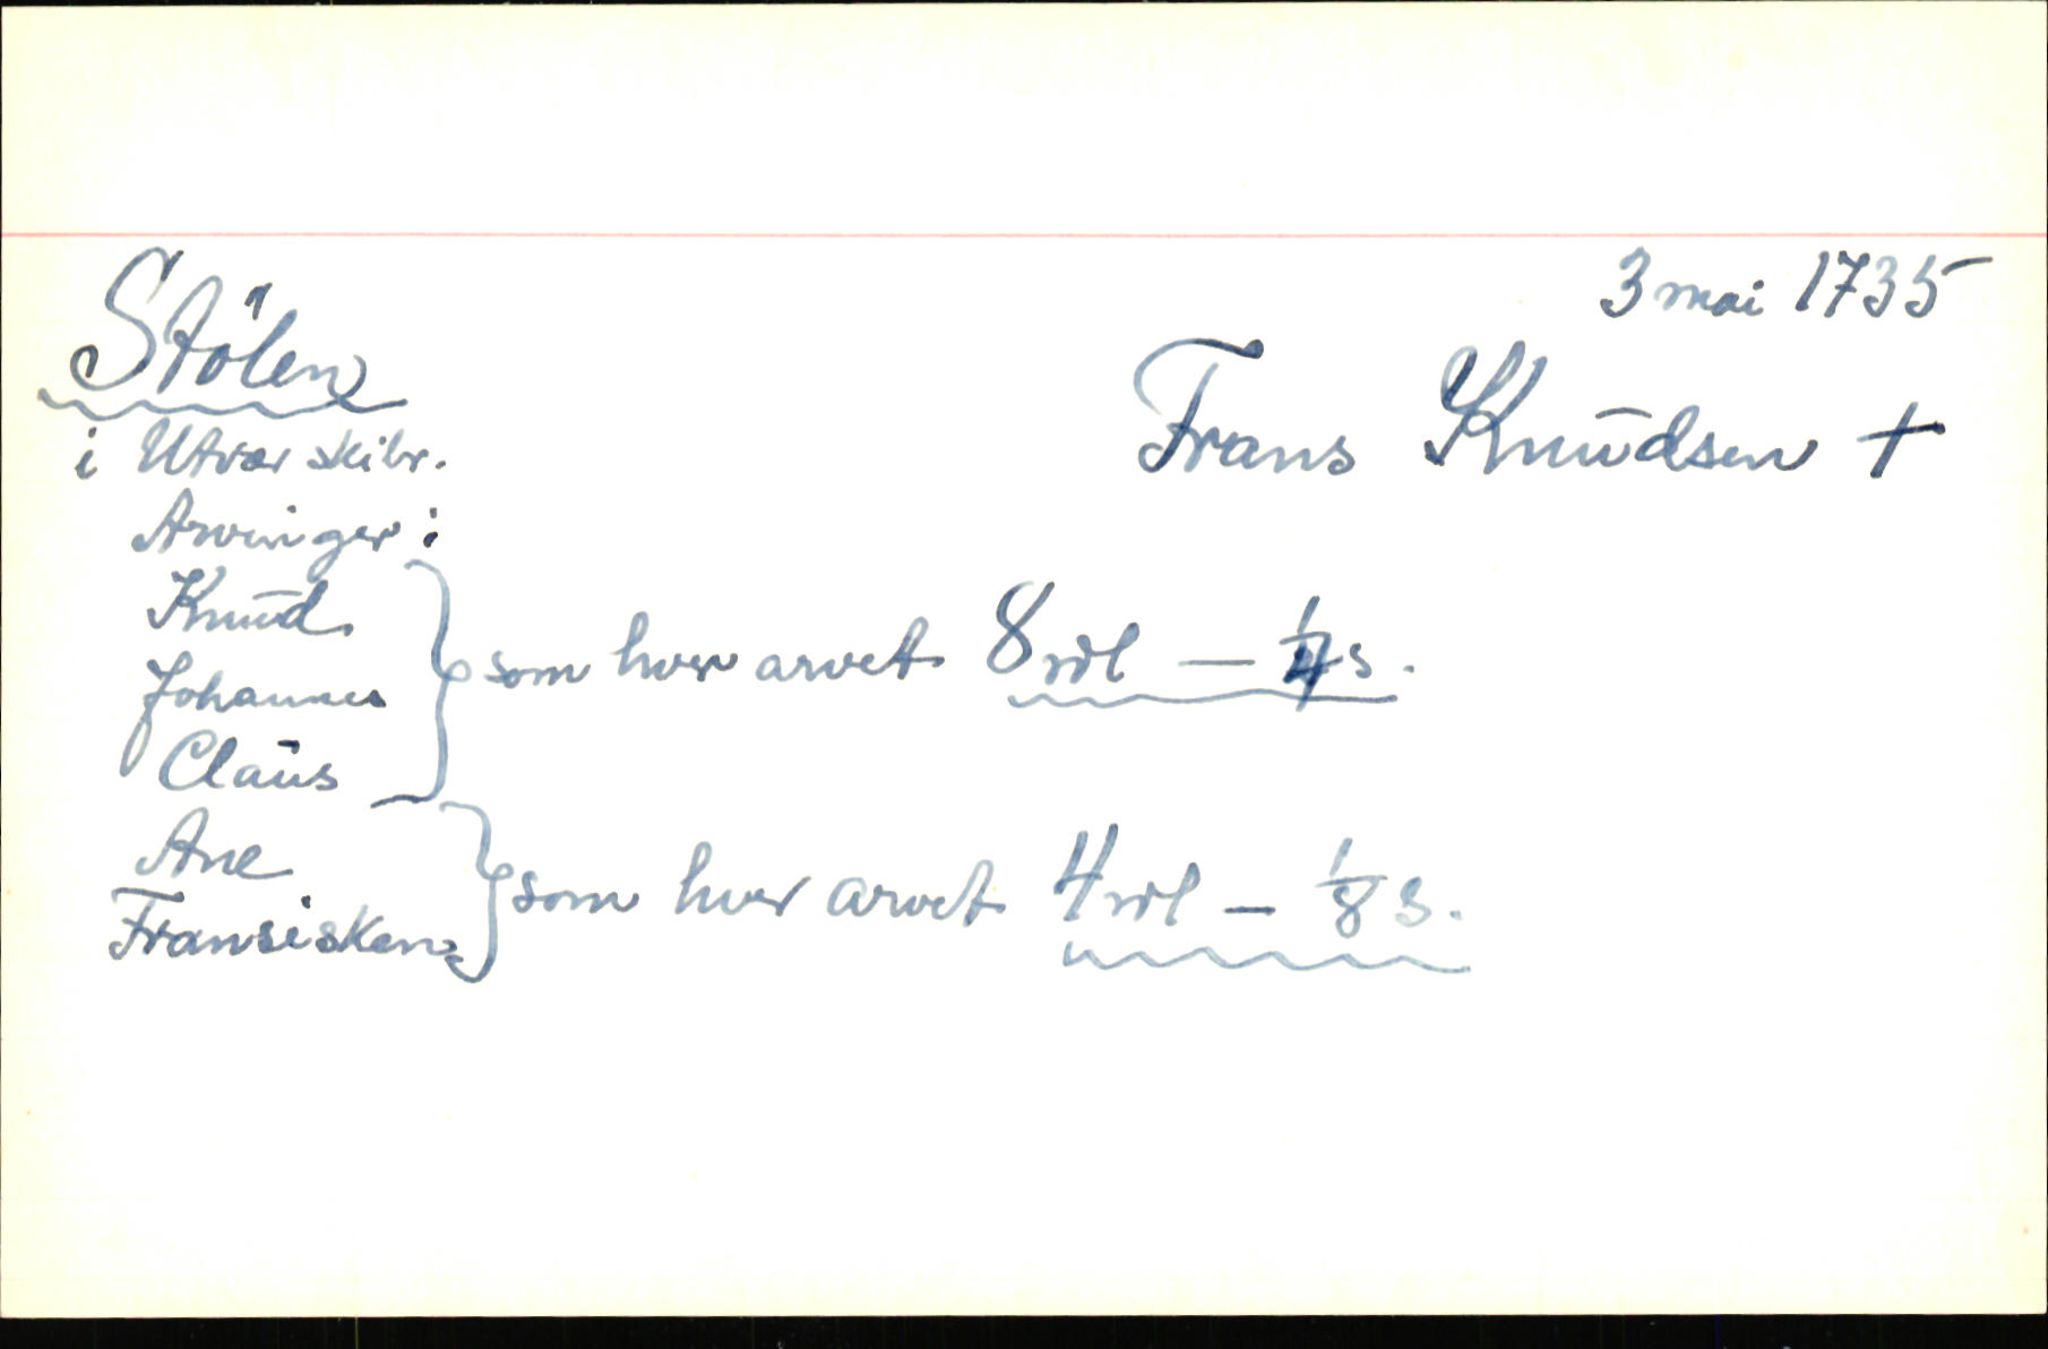 3 mai 1735
Stölen
Frans Knudsen +
i Utvær skibr.
Arvinger:
Knud
Johannes
Claus
som hver arvet 8 rdl — 1/4 s.
Ane
Fransisken
som hver arvet 4 rdl — 1/8 s.